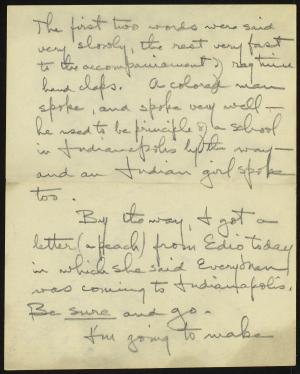 The first two words were said
very slowly, the rest very fast
to the accompaniament of rag time
hand claps. A colored man
spoke, and spoke very well –
he used to be principle of a school
in Indianapolis by the way –
and an Indian girl spoke
too.
By the way, I got a
letter (a peach) from Edio today
in which she said Everyman
was coming to Indianapolis.
Be sure and go.
I'm going to make